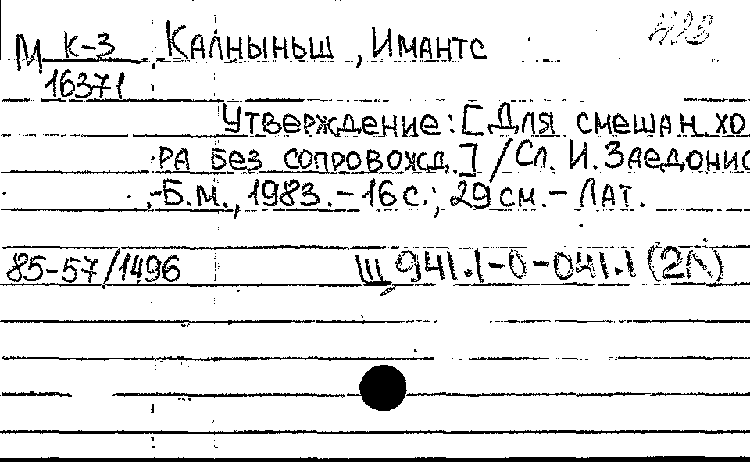 М К-3 Калныньш, Имантс
16371
Утверждение: [Для смешан. хо
ра без сопровожд.] / Сл. И. Заедонис
.-Б.м., 1983.- 16 с.; 29 см.- Лат.
85-57/1496 Ш 941.1-0-041.1 (2Л)